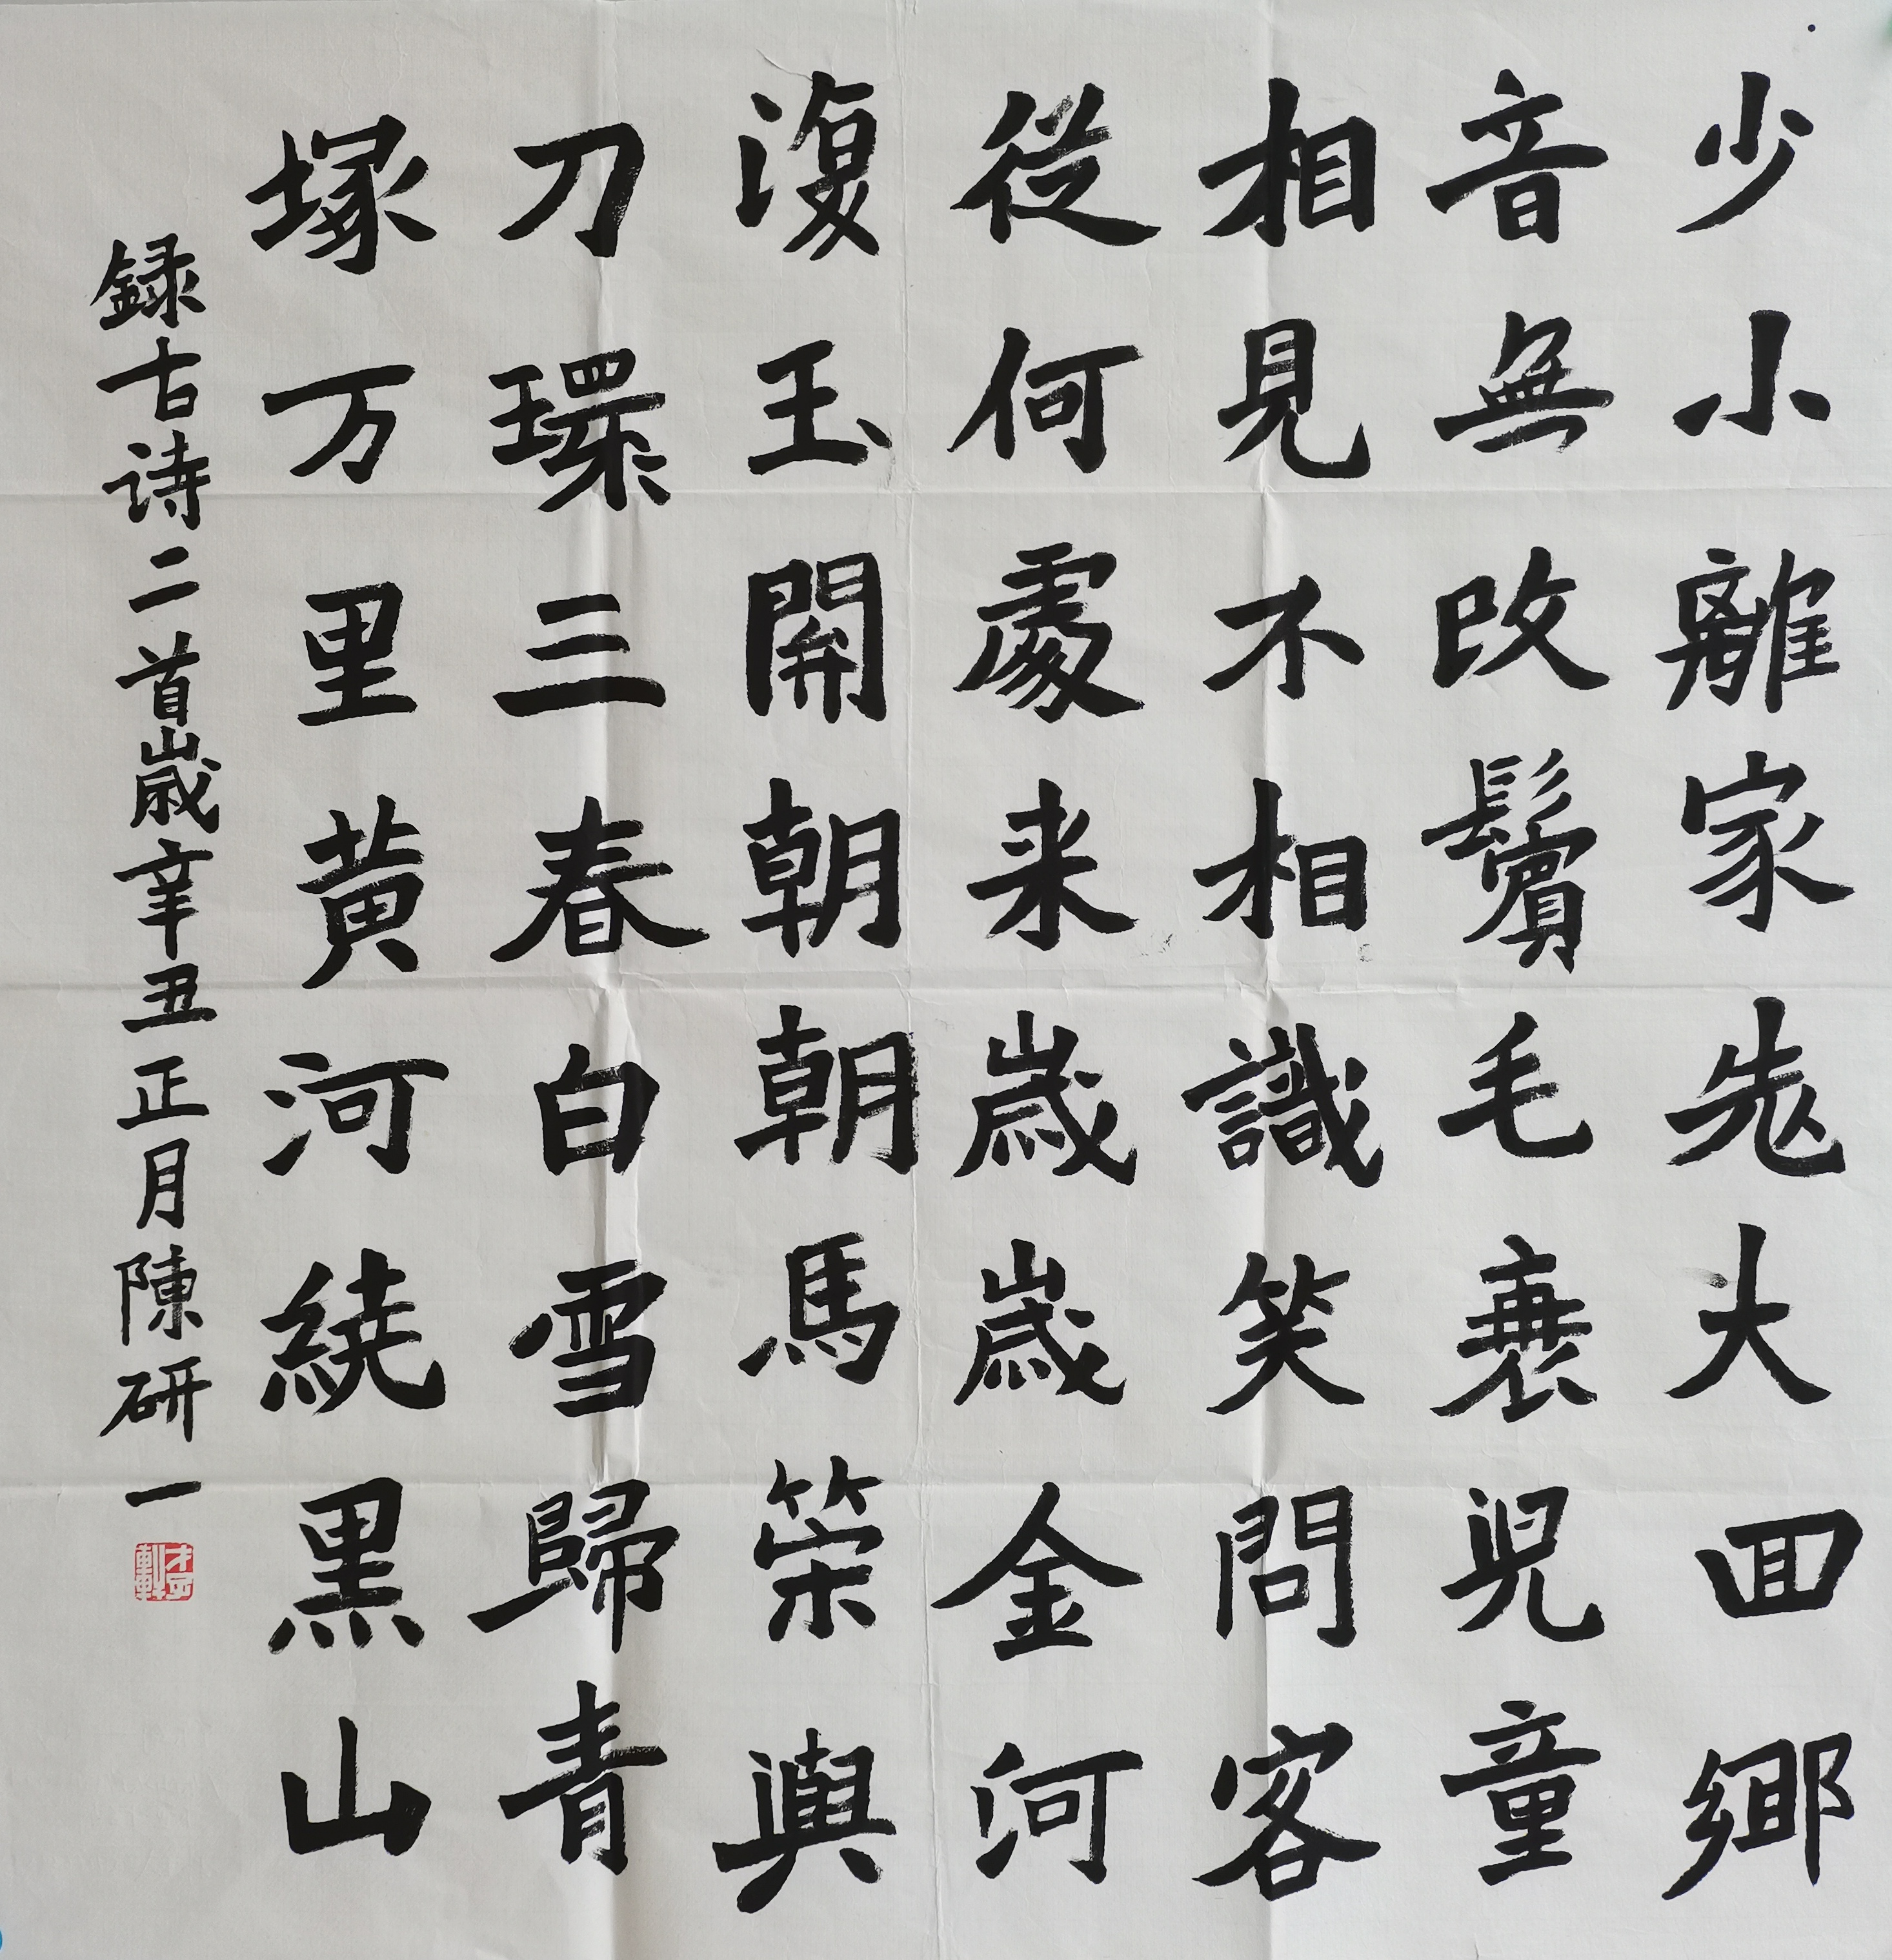 少小離家老大回鄉
音無改鬢毛衰兒童
相見不相識笑問客
從何處来歲歲金河
復玉關朝朝馬策與
刀環三春白雪歸青
塚万里黄河繞黑山
録古诗二首歲辛丑正月陳研一